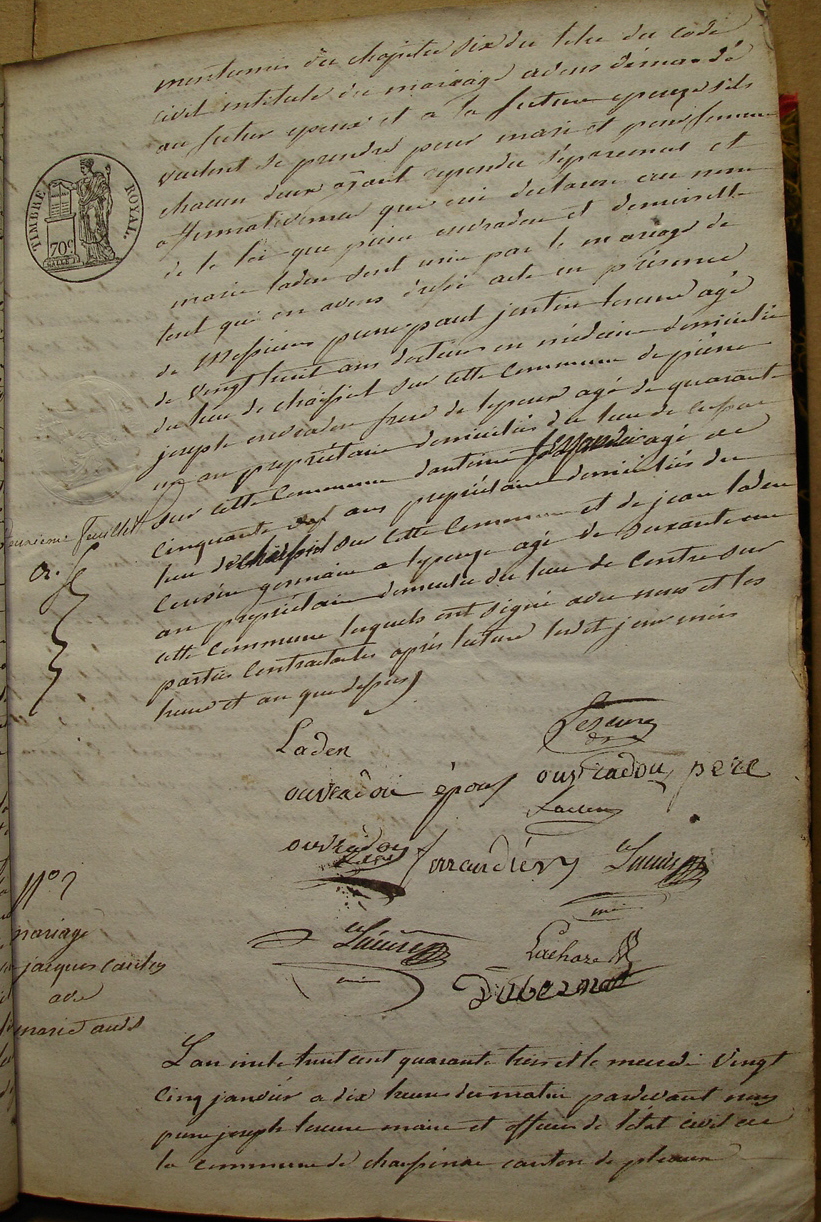 mentionnés du chapitre six du titre du code
civil intitulé du mariage avons demandé
au futur epoux et a la future epouse s'ils
veulent se prendre pour mari et pour femme
chacun deux ayant repondu séparement et
affirmativement que oui declarons au nom
de la loi que pierre ouvradou et demoiselle
marie laden sont unis par le mariage de
tout quoi en avons dréssé acte en présence
de Messieurs pierre paul justin lescure agé
de vingt huit ans docteur en médecine domicilié
du lieu de sur cette commune de pierre
joseph ouvradou frere de lepoux agé de quarante
un an propriétaire domiciliés du lieu de
sur cette Commune dantoine agé de
cinquante ans propriétaire domiciliés du
lieu de sur cette Commune et de jean laden
cousin germain a lepouse agé de soixante un
an propriétaire domicilié du lieu de Contre sur
cette Commune lesquels ont signé avec nous et les
parties Contractantes après lecture lesdit jour mois
heure et an que dessus
TIMBRE ROYAL.
70c
deuxieme feuillet
Laden
Lescure
ouvradou époux
ouvradou pere
ouvradou
ferrandiery
Lachaze
Dubernat
N° 2
mariage
jacques
avec
marie
L'an mille huit cent quarante trois et le mercredi vingt
cinq janvier a dix heures du matin pardevant nous
pierre joseph lescure maire et officier de l'état civil de
la commune de canton de pleaux